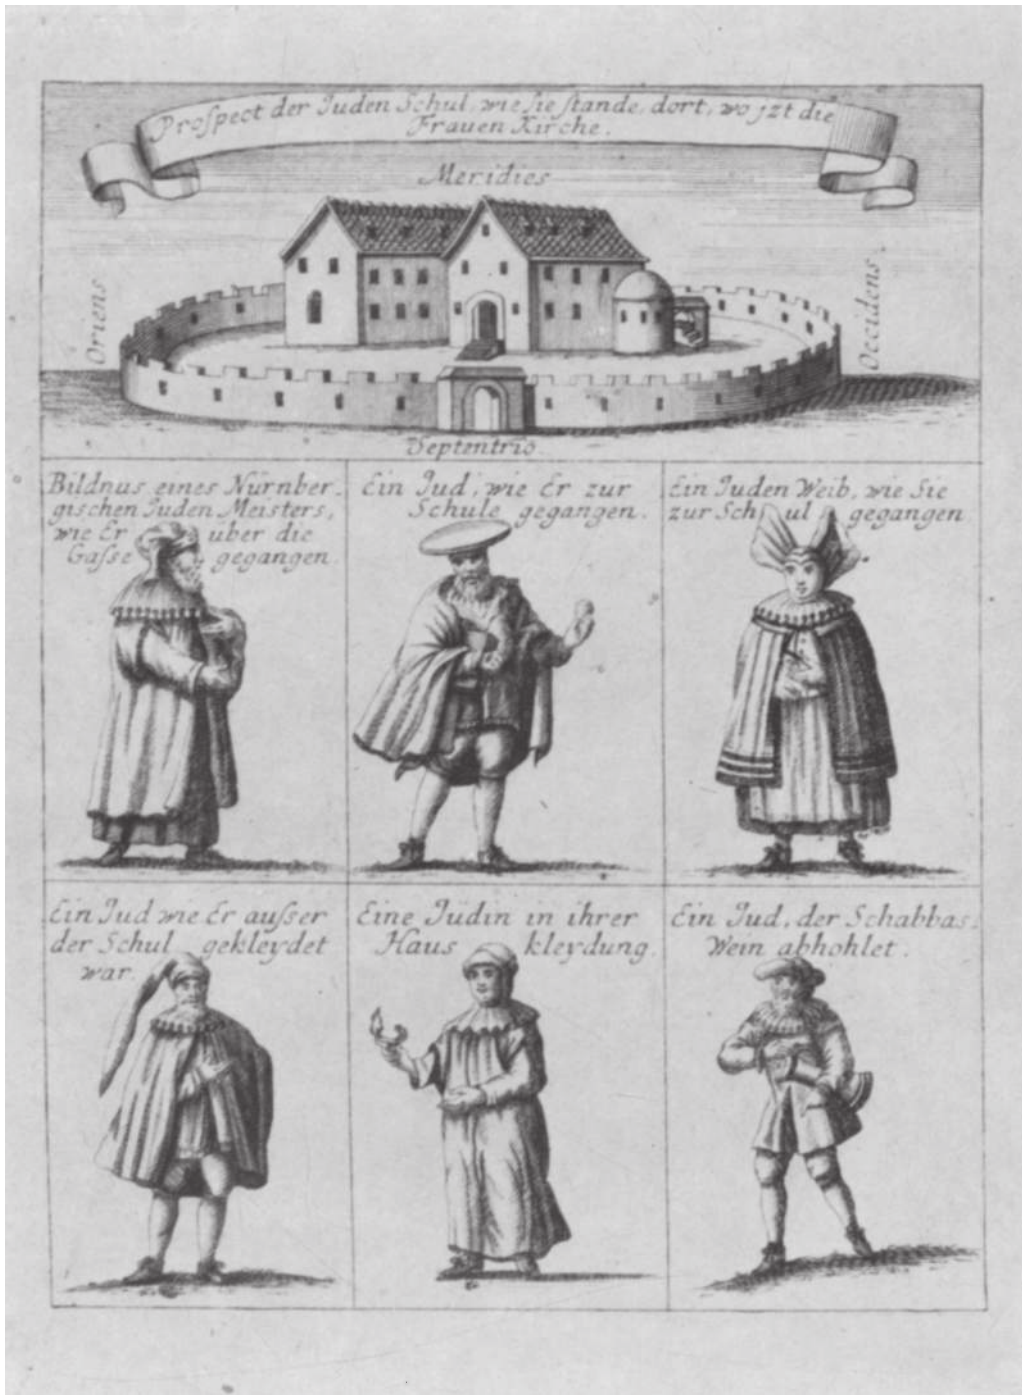 Prospect der Juden Schul, wie Sie stande, dort, wo jzt die
Frauen Kirche.
Meridies
Oriens
Occidens
Septentrio.
Bildnus eines Nürnber-
gischen Juden Meisters,
wie Er über die
Gasse gegangen.
Ein Jud, wie Er zur
Schule gegangen.
Ein Juden Weib, wie Sie
zur Schul gegangen
Ein Jud wie Er ausser
der Schul gekleydet
war.
Eine Jüdin in ihrer
Haus kleydung.
Ein Jud, der Schabbas-
Wein abhohlet.